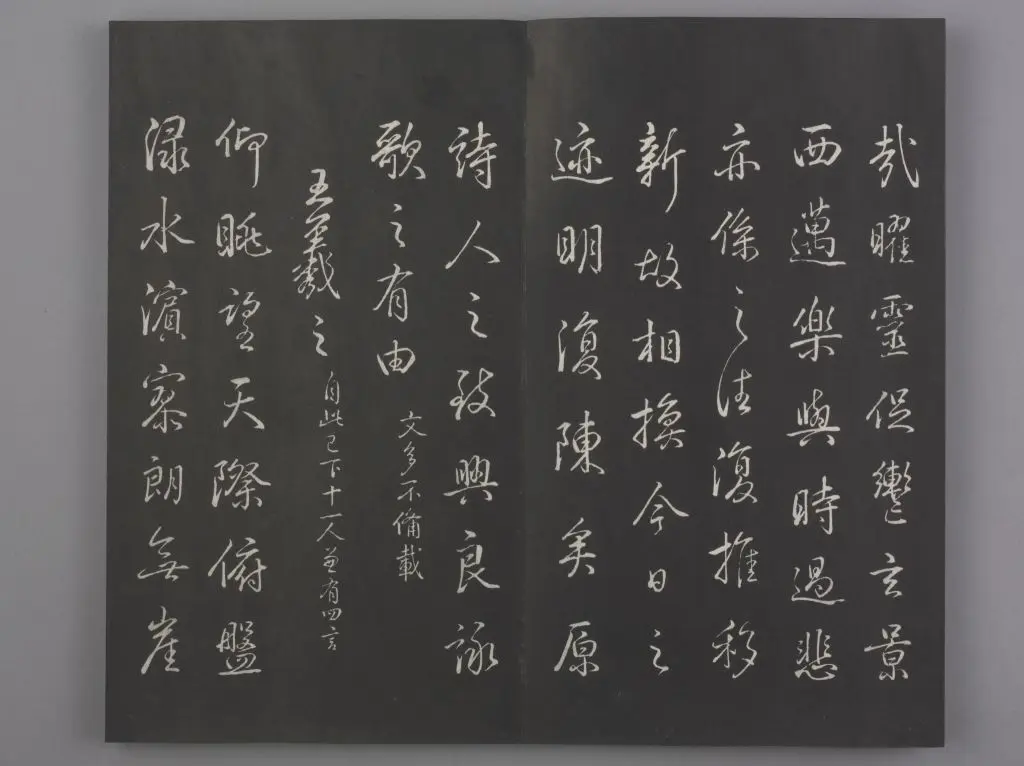 哉曜靈促轡玄景
西邁樂與時過悲
亦係之往復推移
新故相換今日之
迹明復陳矣原
詩人之致興良詠
歌之有由 文多不備載
王羲之 自此已下十一人並有四言
仰眺望天際俯盤
渌水濱寥朗無崖